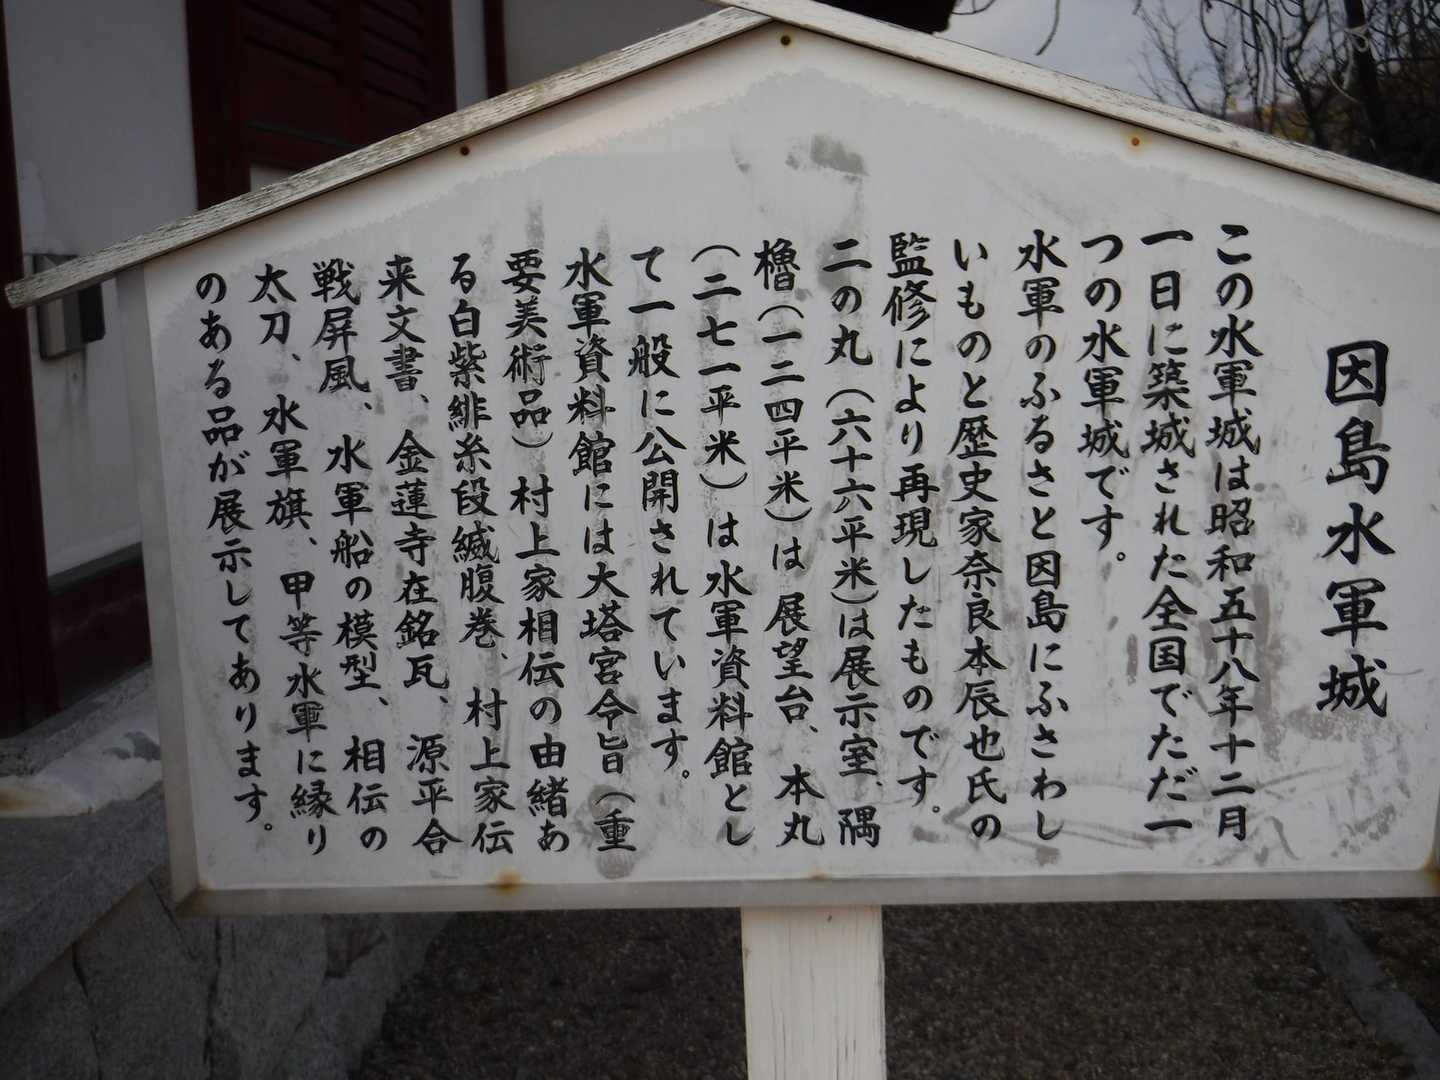 因島水軍城
この水軍城は昭和五十八年十二月
一日に築城された全国でただ一
つの水軍城です。
水軍のふるさと因島にふさわし
いものと歴史家奈良本辰也氏の
監修により再現したものです。
二の丸(六十六平米)は展示室、隅
櫓(一二四平米)は展望台、本丸
(二七一平米)は水軍資料館とし
て一般に公開されています。
水軍資料館には大塔宮令旨(重
要美術品)村上家相伝の由緒あ
る白紫緋糸段縅腹巻、村上家伝
来文書、金蓮寺在銘瓦、源平合
戦屏風、水軍船の模型、相伝の
太刀、水軍旗、甲等水軍に縁り
のある品が展示してあります。